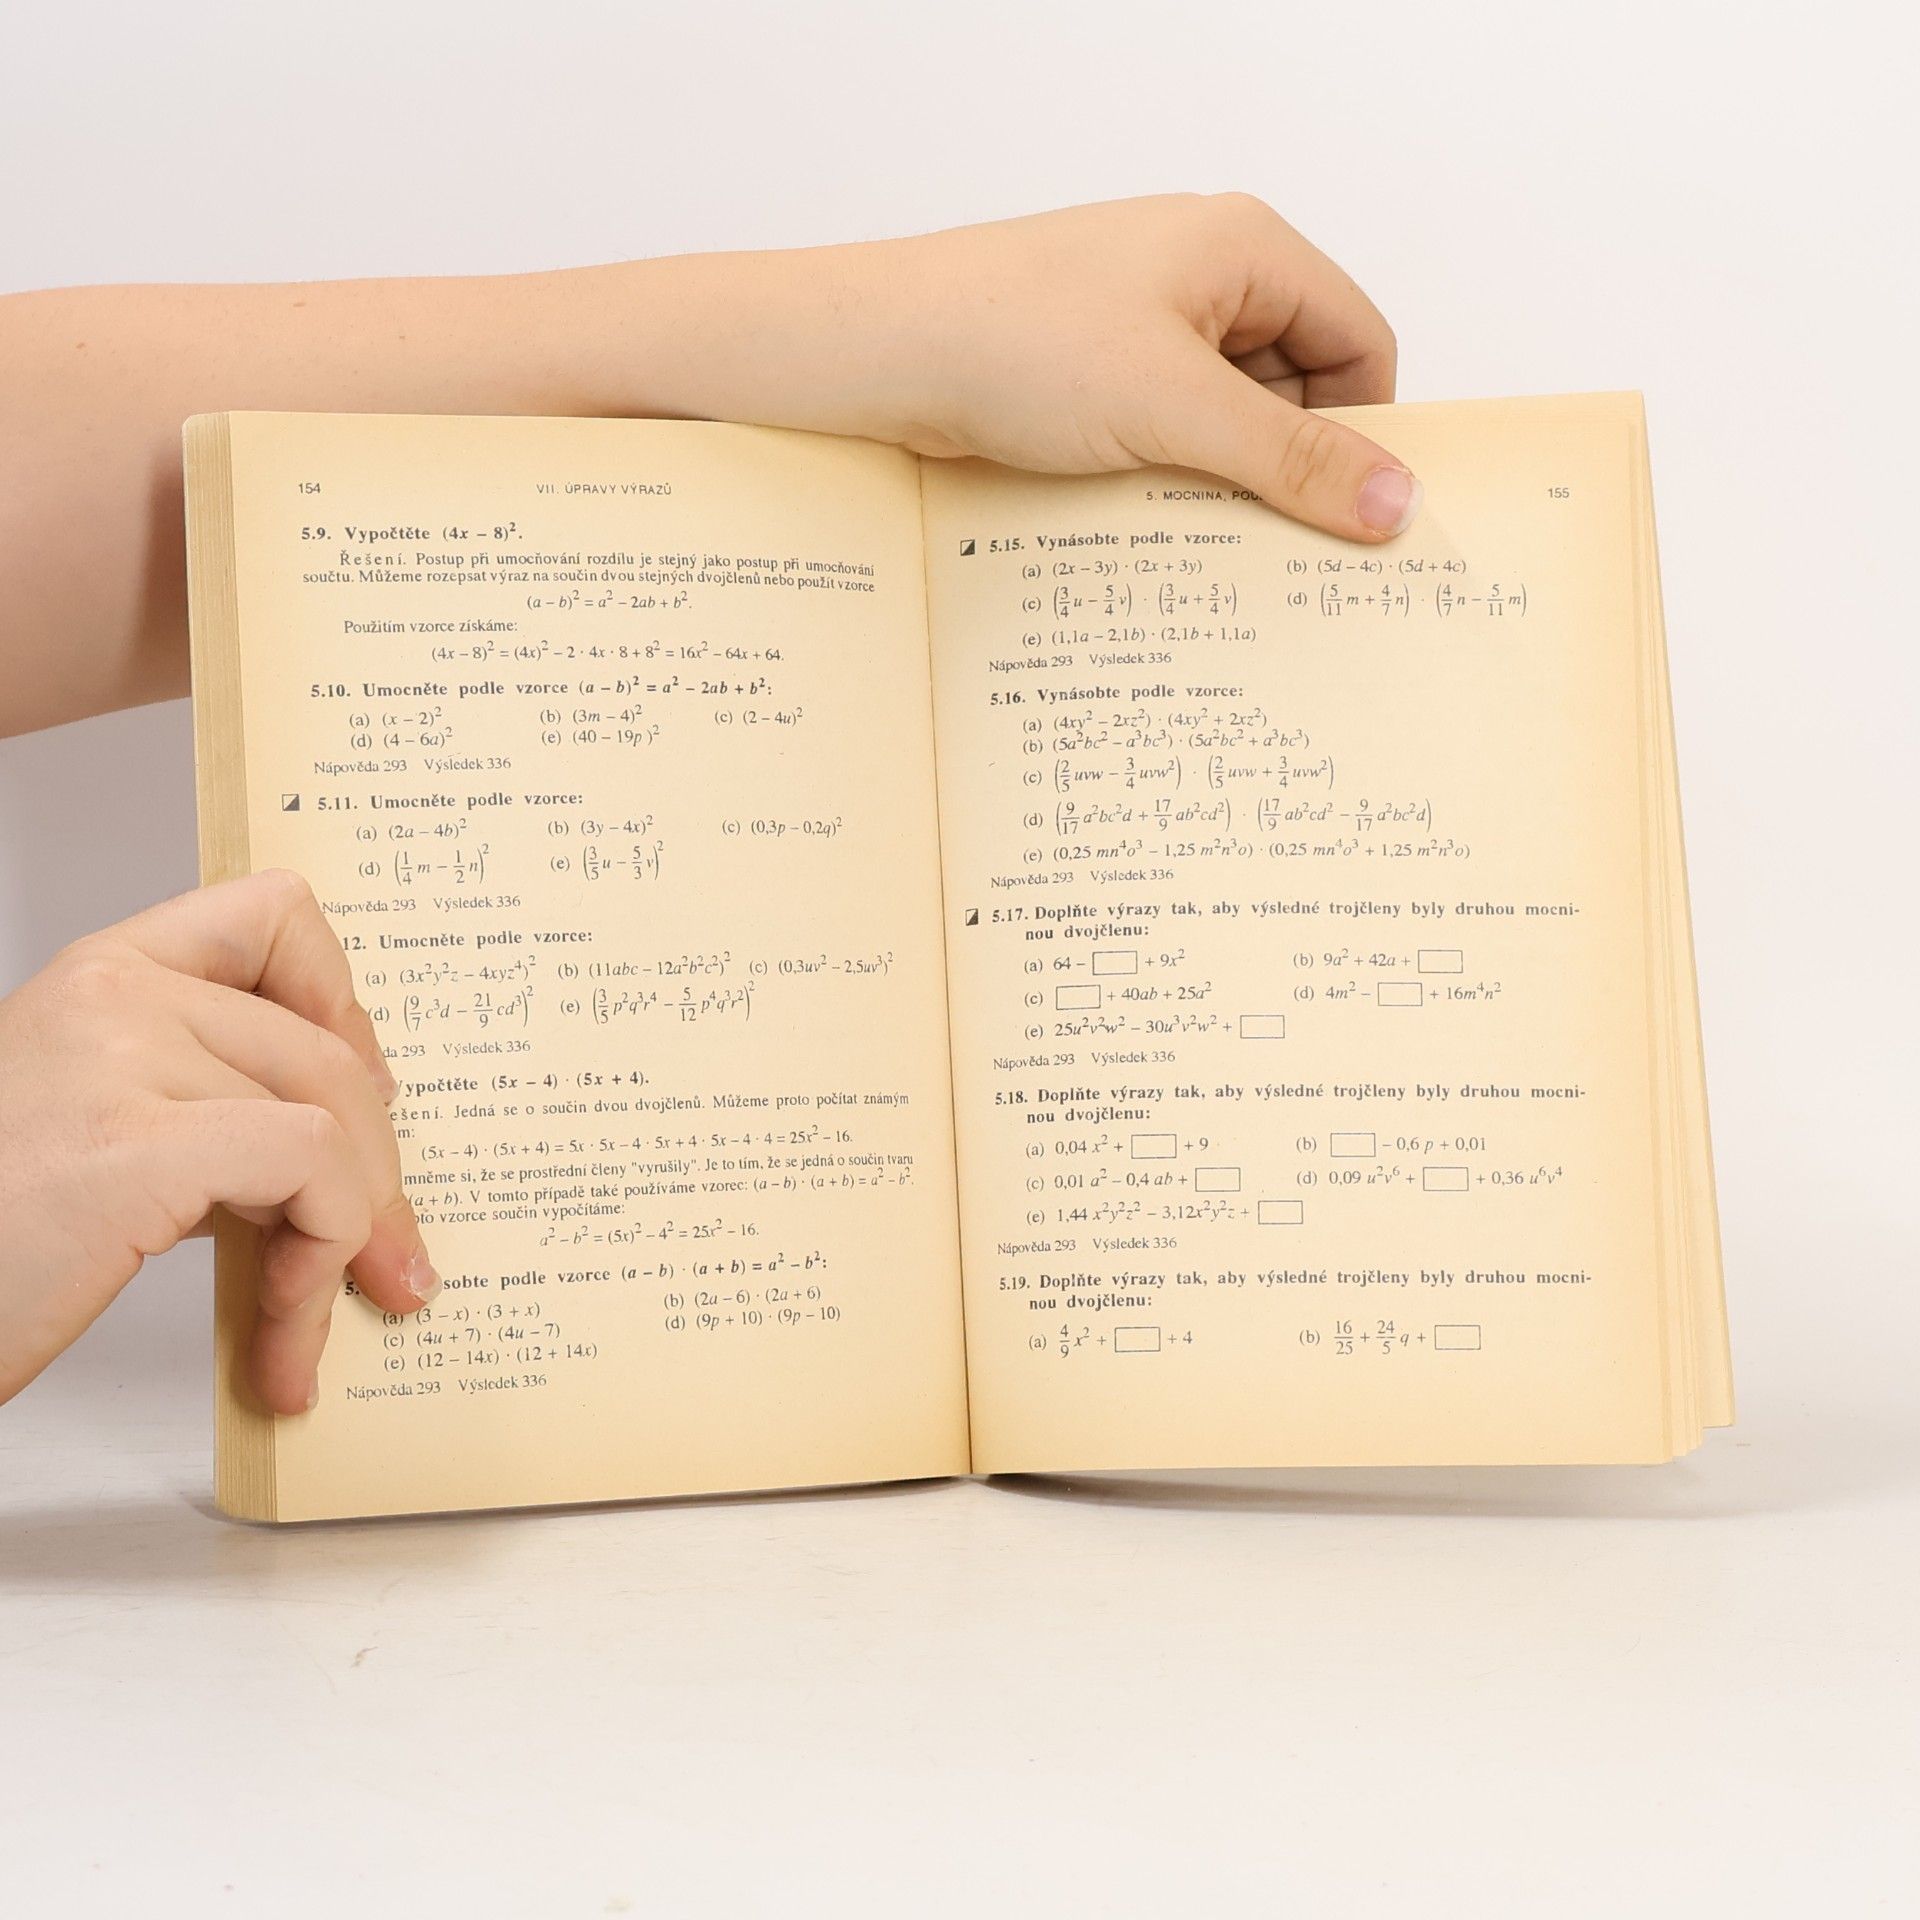 154 VII. ÚPRAVY VÝRAZŮ
5.9. Vypočtěte (4x – 8)².
Řešení. Postup při umocňování rozdílu je stejný jako postup při umocňování
součtu. Můžeme rozepsat výraz na součin dvou stejných dvojčlenů nebo použít vzorce
(a – b)² = a² – 2ab + b².
Použitím vzorce získáme:
(4x – 8)² = (4x)² – 2 · 4x · 8 + 8² = 16x² – 64x + 64.
5.10. Umocněte podle vzorce (a – b)² = a² – 2ab + b²:
(a) (x – 2)² (b) (3m – 4)² (c) (2 – 4u)²
(d) (4 – 6a)² (e) (40 – 19p )²
Nápověda 293 Výsledek 336
5.11. Umocněte podle vzorce:
(a) (2a – 4b)² (b) (3y – 4x)² (c) (0,3p – 0,2q)²
(d) (1/4 m – 1/2 n)² (e) (3/5 u – 5/3 v)²
Nápověda 293 Výsledek 336
12. Umocněte podle vzorce:
(a) (3x²y²z – 4xyz⁴)² (b) (11abc – 12a²b²c²)² (c) (0,3uv² – 2,5uv³)²
(d) (9/7 c³d – 21/9 cd³)² (e) (3/5 p²q³r⁴ – 5/12 p⁴q³r²)²
da 293 Výsledek 336
ypočtěte (5x – 4) · (5x + 4).
ešení. Jedná se o součin dvou dvojčlenů. Můžeme proto počítat známým
m:
(5x – 4) · (5x + 4) = 5x · 5x – 4 · 5x + 4 · 5x – 4 · 4 = 25x² – 16.
mněme si, že se prostřední členy "vyrušily". Je to tím, že se jedná o součin tvaru
(a + b). V tomto případě také používáme vzorec: (a – b) · (a + b) = a² – b².
oto vzorce součin vypočítáme:
a² – b² = (5x)² – 4² = 25x² – 16.
5. sobte podle vzorce (a – b) · (a + b) = a² – b²:
(a) (3 – x) · (3 + x) (b) (2a – 6) · (2a + 6)
(c) (4u + 7) · (4u – 7) (d) (9p + 10) · (9p – 10)
(e) (12 – 14x) · (12 + 14x)
Nápověda 293 Výsledek 336
5. MOCNINA, POU 155
5.15. Vynásobte podle vzorce:
(a) (2x – 3y) · (2x + 3y) (b) (5d – 4c) · (5d + 4c)
(c) (3/4 u – 5/4 v) · (3/4 u + 5/4 v) (d) (5/11 m + 4/7 n) · (4/7 n – 5/11 m)
(e) (1,1a – 2,1b) · (2,1b + 1,1a)
Nápověda 293 Výsledek 336
5.16. Vynásobte podle vzorce:
(a) (4xy² – 2xz²) · (4xy² + 2xz²)
(b) (5a²bc² – a³bc³) · (5a²bc² + a³bc³)
(c) (2/5 uvw – 3/4 uvw²) · (2/5 uvw + 3/4 uvw²)
(d) (9/17 a²bc²d + 17/9 ab²cd²) · (17/9 ab²cd² – 9/17 a²bc²d)
(e) (0,25 mn⁴o³ – 1,25 m²n³o) · (0,25 mn⁴o³ + 1,25 m²n³o)
Nápověda 293 Výsledek 336
5.17. Doplňte výrazy tak, aby výsledné trojčleny byly druhou mocni-
nou dvojčlenu:
(a) 64 – □ + 9x² (b) 9a² + 42a + □
(c) □ + 40ab + 25a² (d) 4m² – □ + 16m⁴n²
(e) 25u²v²w² – 30u³v²w² + □
Nápověda 293 Výsledek 336
5.18. Doplňte výrazy tak, aby výsledné trojčleny byly druhou mocni-
nou dvojčlenu:
(a) 0,04 x² + □ + 9 (b) □ – 0,6 p + 0,01
(c) 0,01 a² – 0,4 ab + □ (d) 0,09 u²v⁶ + □ + 0,36 u⁶v⁴
(e) 1,44 x²y²z² – 3,12x²y²z + □
Nápověda 293 Výsledek 336
5.19. Doplňte výrazy tak, aby výsledné trojčleny byly druhou mocni-
nou dvojčlenu:
(a) 4/9 x² + □ + 4 (b) 16/25 + 24/5 q + □